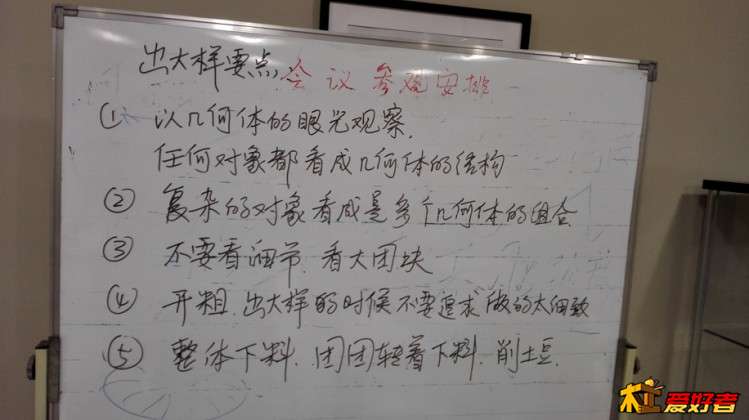 出大样要点
会议参观安排
① 以几何体的眼光观察.
任何对象都看成几何体的结构
② 复杂的对象看成是多个几何体的组合
③ 不要看细节.看大团块
④ 开粗.出大样的时候不要追求做的太细致
⑤ 整体下料.团团转着下料.削土豆.
木工爱好者